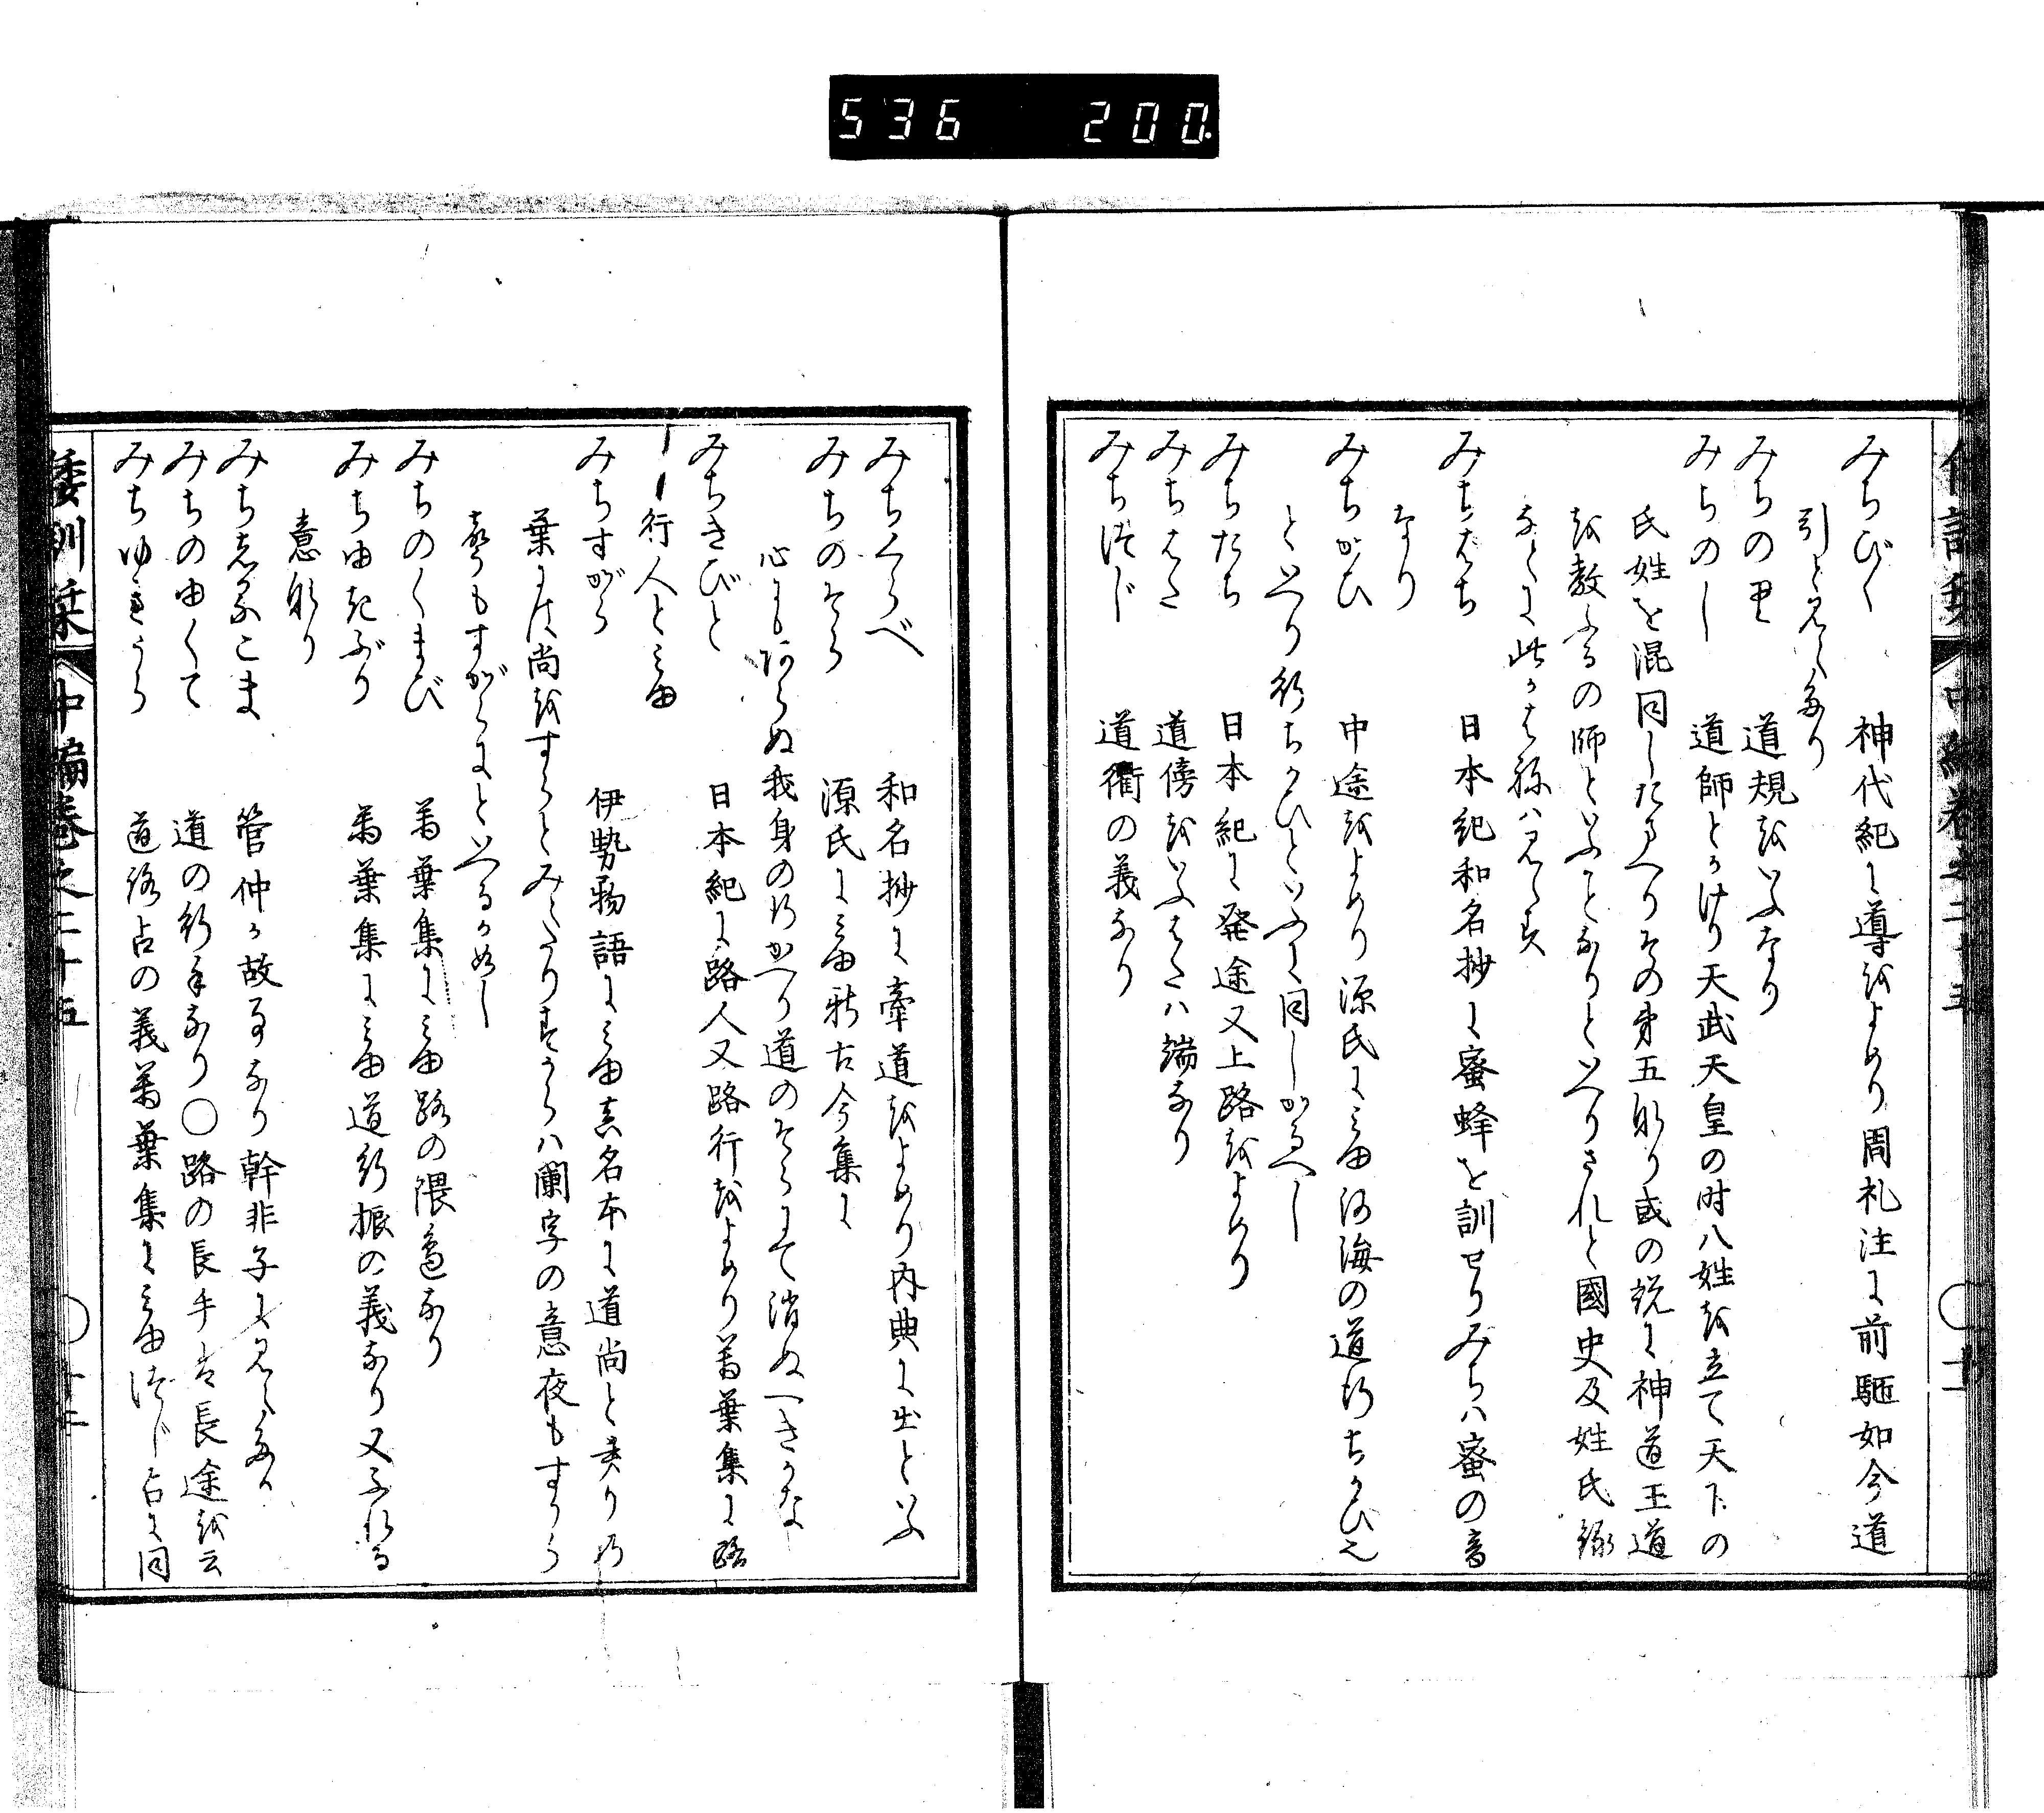 536 200
みちびく 神代紀に導をよめり周礼注に前駈如今道
引と見えたり
みちのり 道規をいふなり
みちのし 道師とかけり天武天皇の時八姓を立て天下の
氏姓を混同したまへりその第五なり或の説に神道王道
を教ふるの師といふことなりといへりされと國史及姓氏録
なとに此かはねハ見えす
みちばち 日本紀和名抄に蜜蜂を訓せりみちハ蜜の音
なり
みちかひ 中途をよめり源氏にみゆ河海の道行ちかひ也
といへり行ちかひといふに同しかるへし
みちたち 日本紀に発途又上路をよめり
みちはた 道傍をいふはたハ端なり
みちつじ 道衢の義なり
みちくらべ 和名抄に牽道をよめり内典に出といふ
みちのそら 源氏にみゆ新古今集に
心にもあらぬ我身の行かへり道のそらにて消ぬへきかな
みちきびと 日本紀に路人又路行をよめり萬葉集に路
行人とみゆ
みちすがら 伊勢物語にみゆ真名本に道尚と書り万
葉には尚をすらとみえたりすからハ闌字の意夜もすから
春もすがらにといへるか如し
みちのくまび 萬葉集にみゆ路の隈邉なり
みちゆきぶり 萬葉集にみゆ道行振の義なり又ふれる
意なり
みちしるこま 管仲か故事なり幹非子に見えたり
みちのゆくて 道の行手なり〇路の長手は長途を云
みちゆきうら 道路占の義萬葉集にみゆつじ占に同
倭訓栞 中編巻之二十五